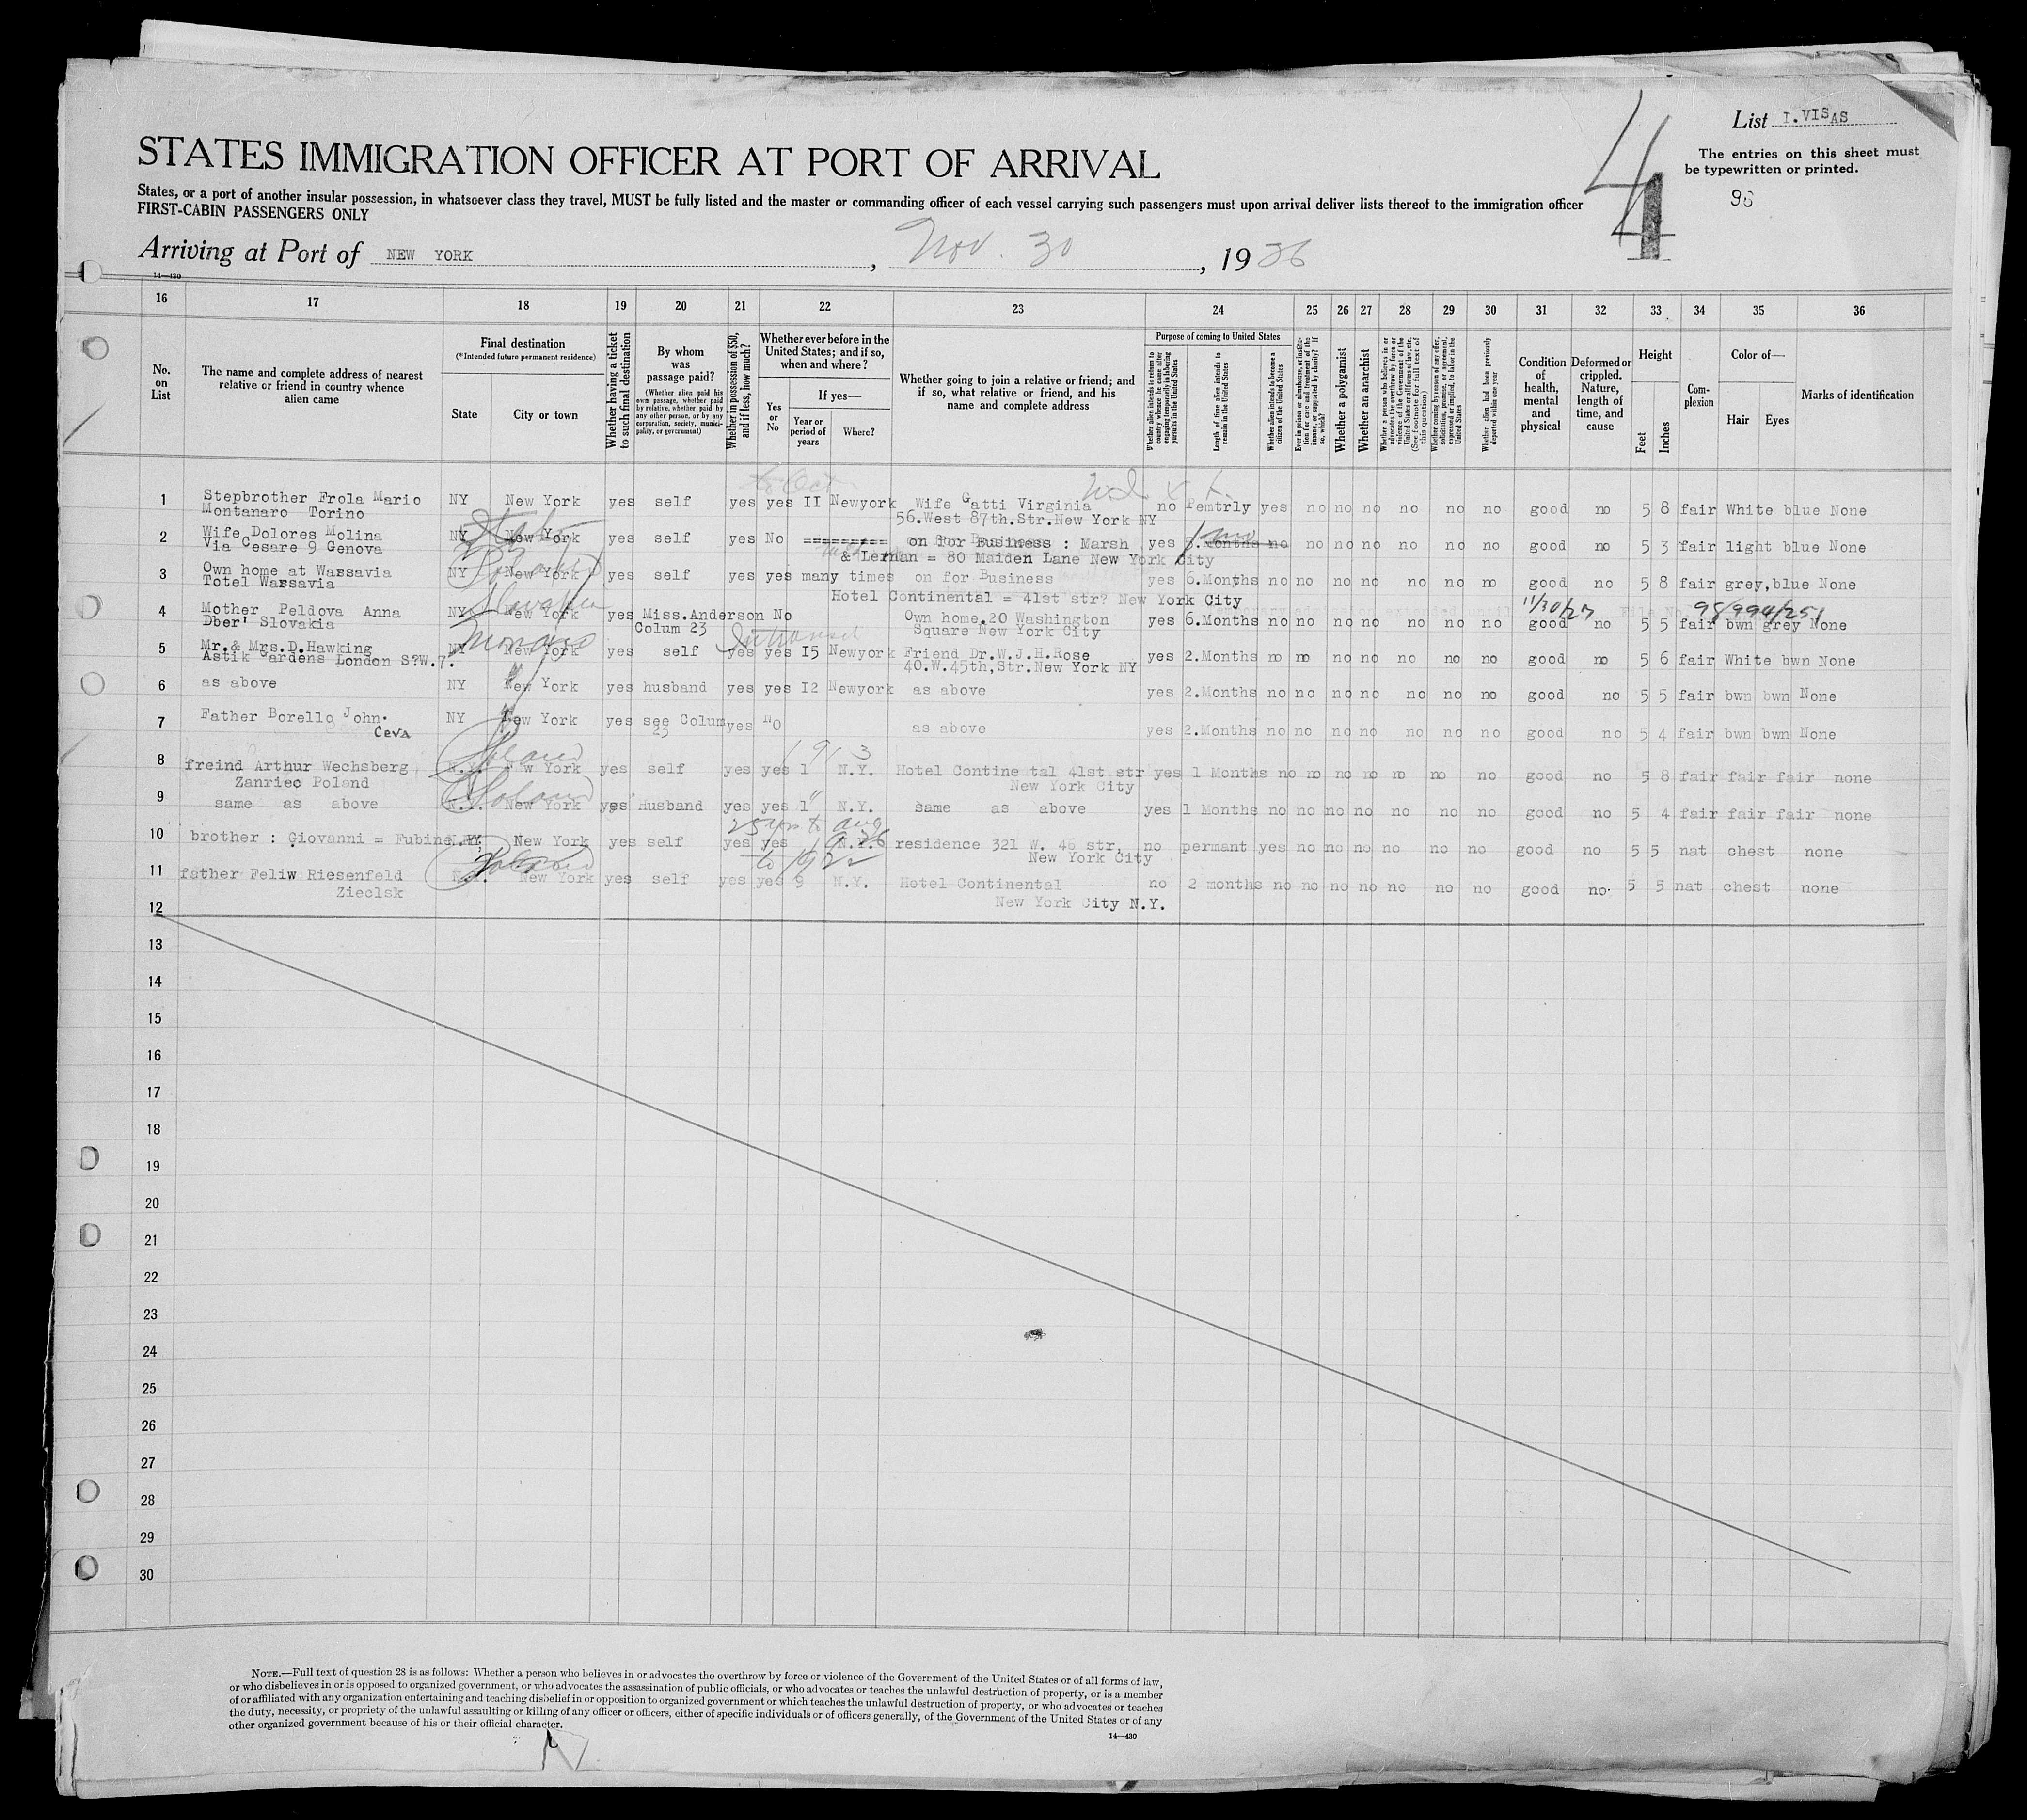 List I.VISAS
STATES IMMIGRATION OFFICER AT PORT OF ARRIVAL
The entries on this sheet must
be typewritten or printed.
States, or a port of another insular possession, in whatsoever class they travel, MUST be fully listed and the master or commanding officer of each vessel carrying such passengers must upon arrival deliver lists thereof to the immigration officer
FIRST-CABIN PASSENGERS ONLY
4
4
96
Arriving at Port of NEW YORK, Nov. 30, 1926
14—430
16 17 18 19 20 21 22 23 24 25 26 27 28 29 30 31 32 33 34 35 36
No. on List
The name and complete address of nearest relative or friend in country whence alien came
Final destination
(*Intended future permanent residence)
State
City or town
Whether having a ticket to such final destination
By whom was passage paid?
(Whether alien paid his own passage, whether paid by relative, whether paid by any other person, or by any corporation, society, municipality, or government)
Whether in possession of $50, and if less, how much?
Whether ever before in the United States; and if so, when and where?
Yes or No
If yes—
Year or period of years
Where?
Whether going to join a relative or friend; and if so, what relative or friend, and his name and complete address
Purpose of coming to United States
Whether alien intends to return to country whence he came after engaging temporarily in laboring pursuits in the United States
Length of time alien intends to remain in the United States
Whether alien intends to become a citizen of the United States
Ever in prison or almshouse, or institution for care and treatment of the insane, or supported by charity? If so, which?
Whether a polygamist
Whether an anarchist
Whether a person who believes in or advocates the overthrow by force or violence of the Government of the United States or all forms of law, etc. (See footnote for full text of this question)
Whether coming by reason of any offer, solicitation, promise, or agreement, expressed or implied, to labor in the United States
Whether alien had been previously deported within one year
Condition of health, mental and physical
Deformed or crippled. Nature, length of time, and cause
Height
Feet
Inches
Complexion
Color of—
Hair Eyes
Marks of identification
to Oct
1 Stepbrother Frola Mario NY New York yes self yes yes II Newyork Wife Gatti Virginia no Pemtrly yes no no no no no no good no 5 8 fair White blue None
Montanaro Torino 56.West 87th.Str.New York NY
2 Wife Dolores Molina NY New York yes self yes No ========= on for Business : Marsh yes 6.Months no no no no no no no good no 5 3 fair light blue None
Via Cesare 9 Genova & Lernan = 80 Maiden Lane New York City
3 Own home at Warsavia NY New York yes self yes yes many times on for Business yes 6.Months no no no no no no no good no 5 8 fair grey,blue None
Totel Warsavia Hotel Continental = 41st str? New York City
11/30/27 File No. 98994/251
4 Mother Peldova Anna NY New York yes Miss.Anderson No Own home.20 Washington yes 6.Months no no no no no no no good no 5 5 fair bwn grey None
Dber' Slovakia Colum 23 Square New York City
5 Mr.& Mrs.D.Hawking NY New York yes self yes yes I5 Newyork Friend Dr.W.J.H.Rose yes 2.Months no no no no no no no good no 5 6 fair White bwn None
Astik Gardens London S?W.7. 40.W.45th,Str.New York NY
6 as above NY New York yes husband yes yes I2 Newyork as above yes 2.Months no no no no no no no good no 5 5 fair bwn bwn None
7 Father Borello John. NY New York yes see Colum yes No as above yes 2.Months no no no no no no no good no 5 4 fair bwn bwn None
Ceva 23
1913
8 freind Arthur Wechsberg N.Y. New York yes self yes yes 1 N.Y. Hotel Contine tal 41st str yes 1 Months no no no no no no no good no 5 8 fair fair fair none
Zanriec Poland New York City
9 same as above N.Y. New York yes Husband yes yes 1 N.Y. same as above yes 1 Months no no no no no no no good no 5 4 fair fair fair none
25 yrs to aug
10 brother : Giovanni = Fubine N.Y. New York yes self yes yes N.Y. residence 321 W. 46 str, no permant yes no no no no no no good no 5 5 nat chest none
New York City
to 1922
11 father Feliw Riesenfeld N.Y. New York yes self yes yes 9 N.Y. Hotel Continental no 2 months no no no no no no no good no. 5 5 nat chest none
Zieclsk New York City N.Y.
12
13
14
15
16
17
18
19
20
21
22
23
24
25
26
27
28
29
30
NOTE.—Full text of question 28 is as follows: Whether a person who believes in or advocates the overthrow by force or violence of the Government of the United States or of all forms of law,
or who disbelieves in or is opposed to organized government, or who advocates the assassination of public officials, or who advocates or teaches the unlawful destruction of property, or is a member
of or affiliated with any organization entertaining and teaching disbelief in or opposition to organized government or which teaches the unlawful destruction of property, or who advocates or teaches
the duty, necessity, or propriety of the unlawful assaulting or killing of any officer or officers, either of specific individuals or of officers generally, of the Government of the United States or of any
other organized government because of his or their official character.
14—430